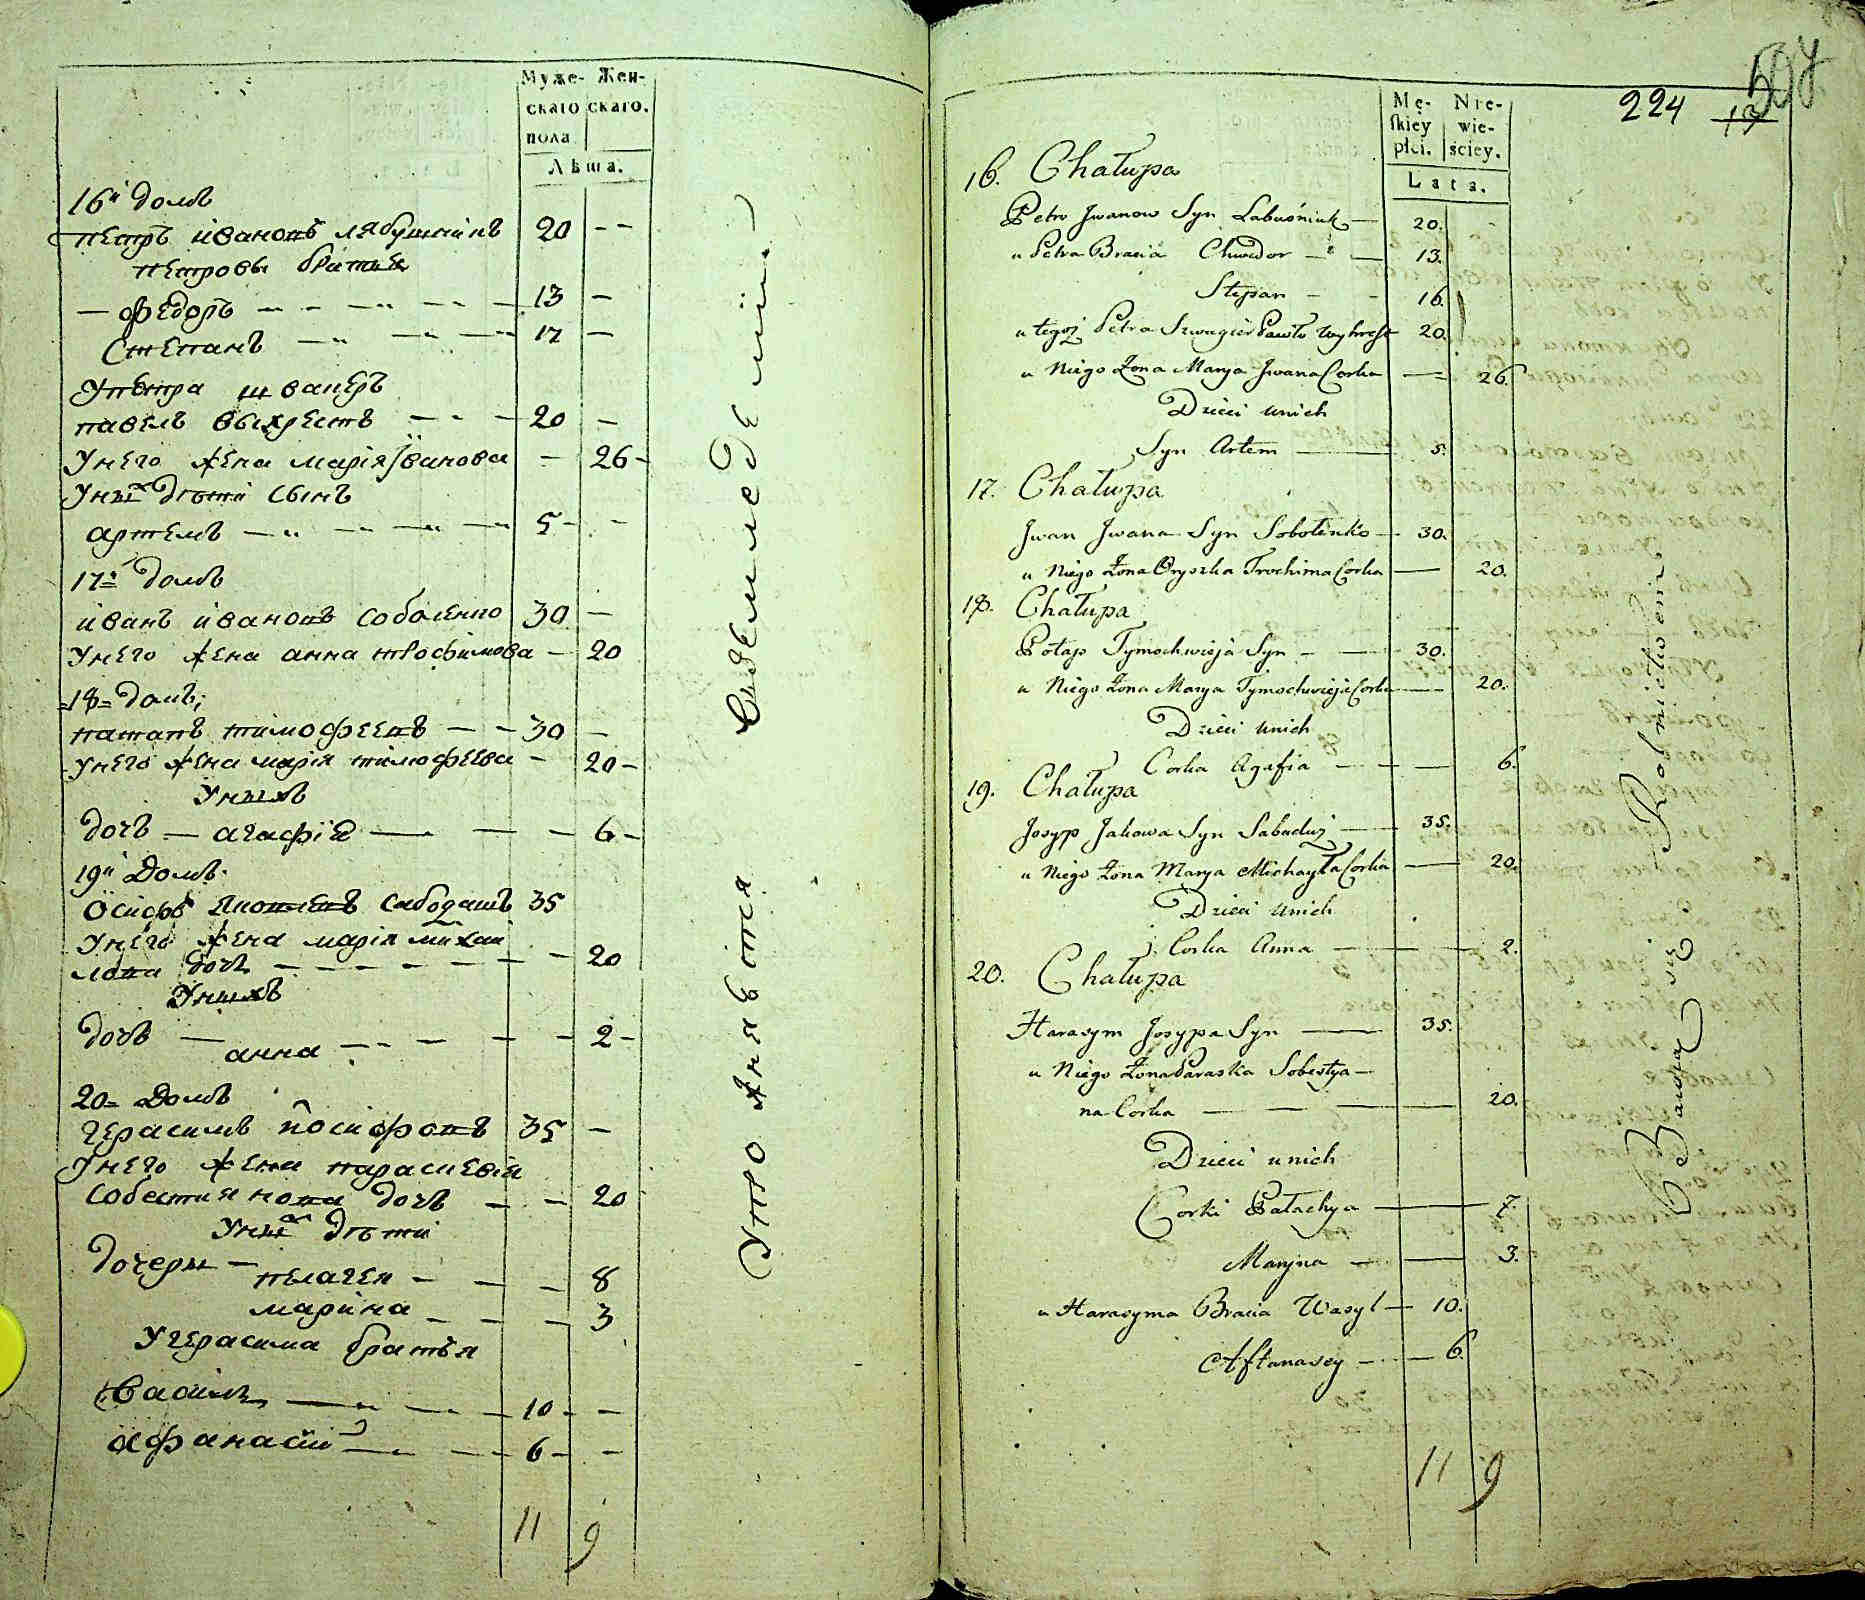 Муже- Жен-
скаго скаго.
пола
Лѣта.
16й домъ
петръ ивановъ лябушнiкъ 20 - -
петровы братья
— федоръ - - - 13 -
Степанъ - - - 17 -
У петра швагеръ
павелъ выхрестъ - - - 20 -
У него жена марiя Iванова - 26 -
У ныхъ дѣти сынъ
артемъ - - - 5 - -
17й домъ
иванъ ивановъ соболенко 30 -
У него жена анна трофимова - 20
18= домъ;
патапъ тимофеевъ - - 30 -
У него жена марiя тимофеева - 20 -
У ныхъ
дочъ - агафiя - - - 6 -
19й Домъ
Осифъ яковлевъ сабодашъ 35
У него жена марiя михай
лова дочъ - - - - - 20
У ныхъ
дочъ - анна - - - - 2 -
20= Домъ
герасимъ йосифовъ 35 -
У него жена парасковiя
собестиянова дочъ - - 20
У ныхъ дѣти
Дочеры - пелагея - - - 8
марина - - - 3
У герасима братья
Василь - - - 10 - -
Афанасiй - - - 6 - -
11 9
Что Дня вотся Свѣдѣмледѣлiи
224 13
507
Mę- Nie-
skiey wie-
płci. ściey.
Lata.
16. Chałupa
Petro Jwanow Syn Labuśniuk — 20.
u Petra Bracia Chwedor — 13.
Stepan - - 16.
u tegoż Petra Szwagier Pawło Wyhrest 20.
u Niego Żona Marya Jwana Corka — 26.
Dzieci unich
Syn Artem — 5.
17. Chałupa
Jwan Jwana Syn Sobolenko — 30.
u Niego Żona Oryszka Trochima Corka — 20.
18. Chałupa
Potap Tymochwieja Syn - — 30.
u Niego Żona Marya Tymochwieja Corka — 20.
Dzieci unich
Corka Agafia - - — 6.
19. Chałupa
Josyp Jakowa Syn Sabadasz — 35.
u Niego Żona Marya Michayła Corka — 20.
Dzieci unich
Corka Anna — 2.
20. Chałupa
Harasym Josypa Syn — 35.
u Niego Żona Paraska Sobestya—
na Corka — — — 20.
Dzieci unich
Corki Pałachya — — 7.
Maryna — — 3.
u Harasyma Bracia Wasyl — 10.
Aftanasey — — 6.
11 9
Bawią się Rolnictwem